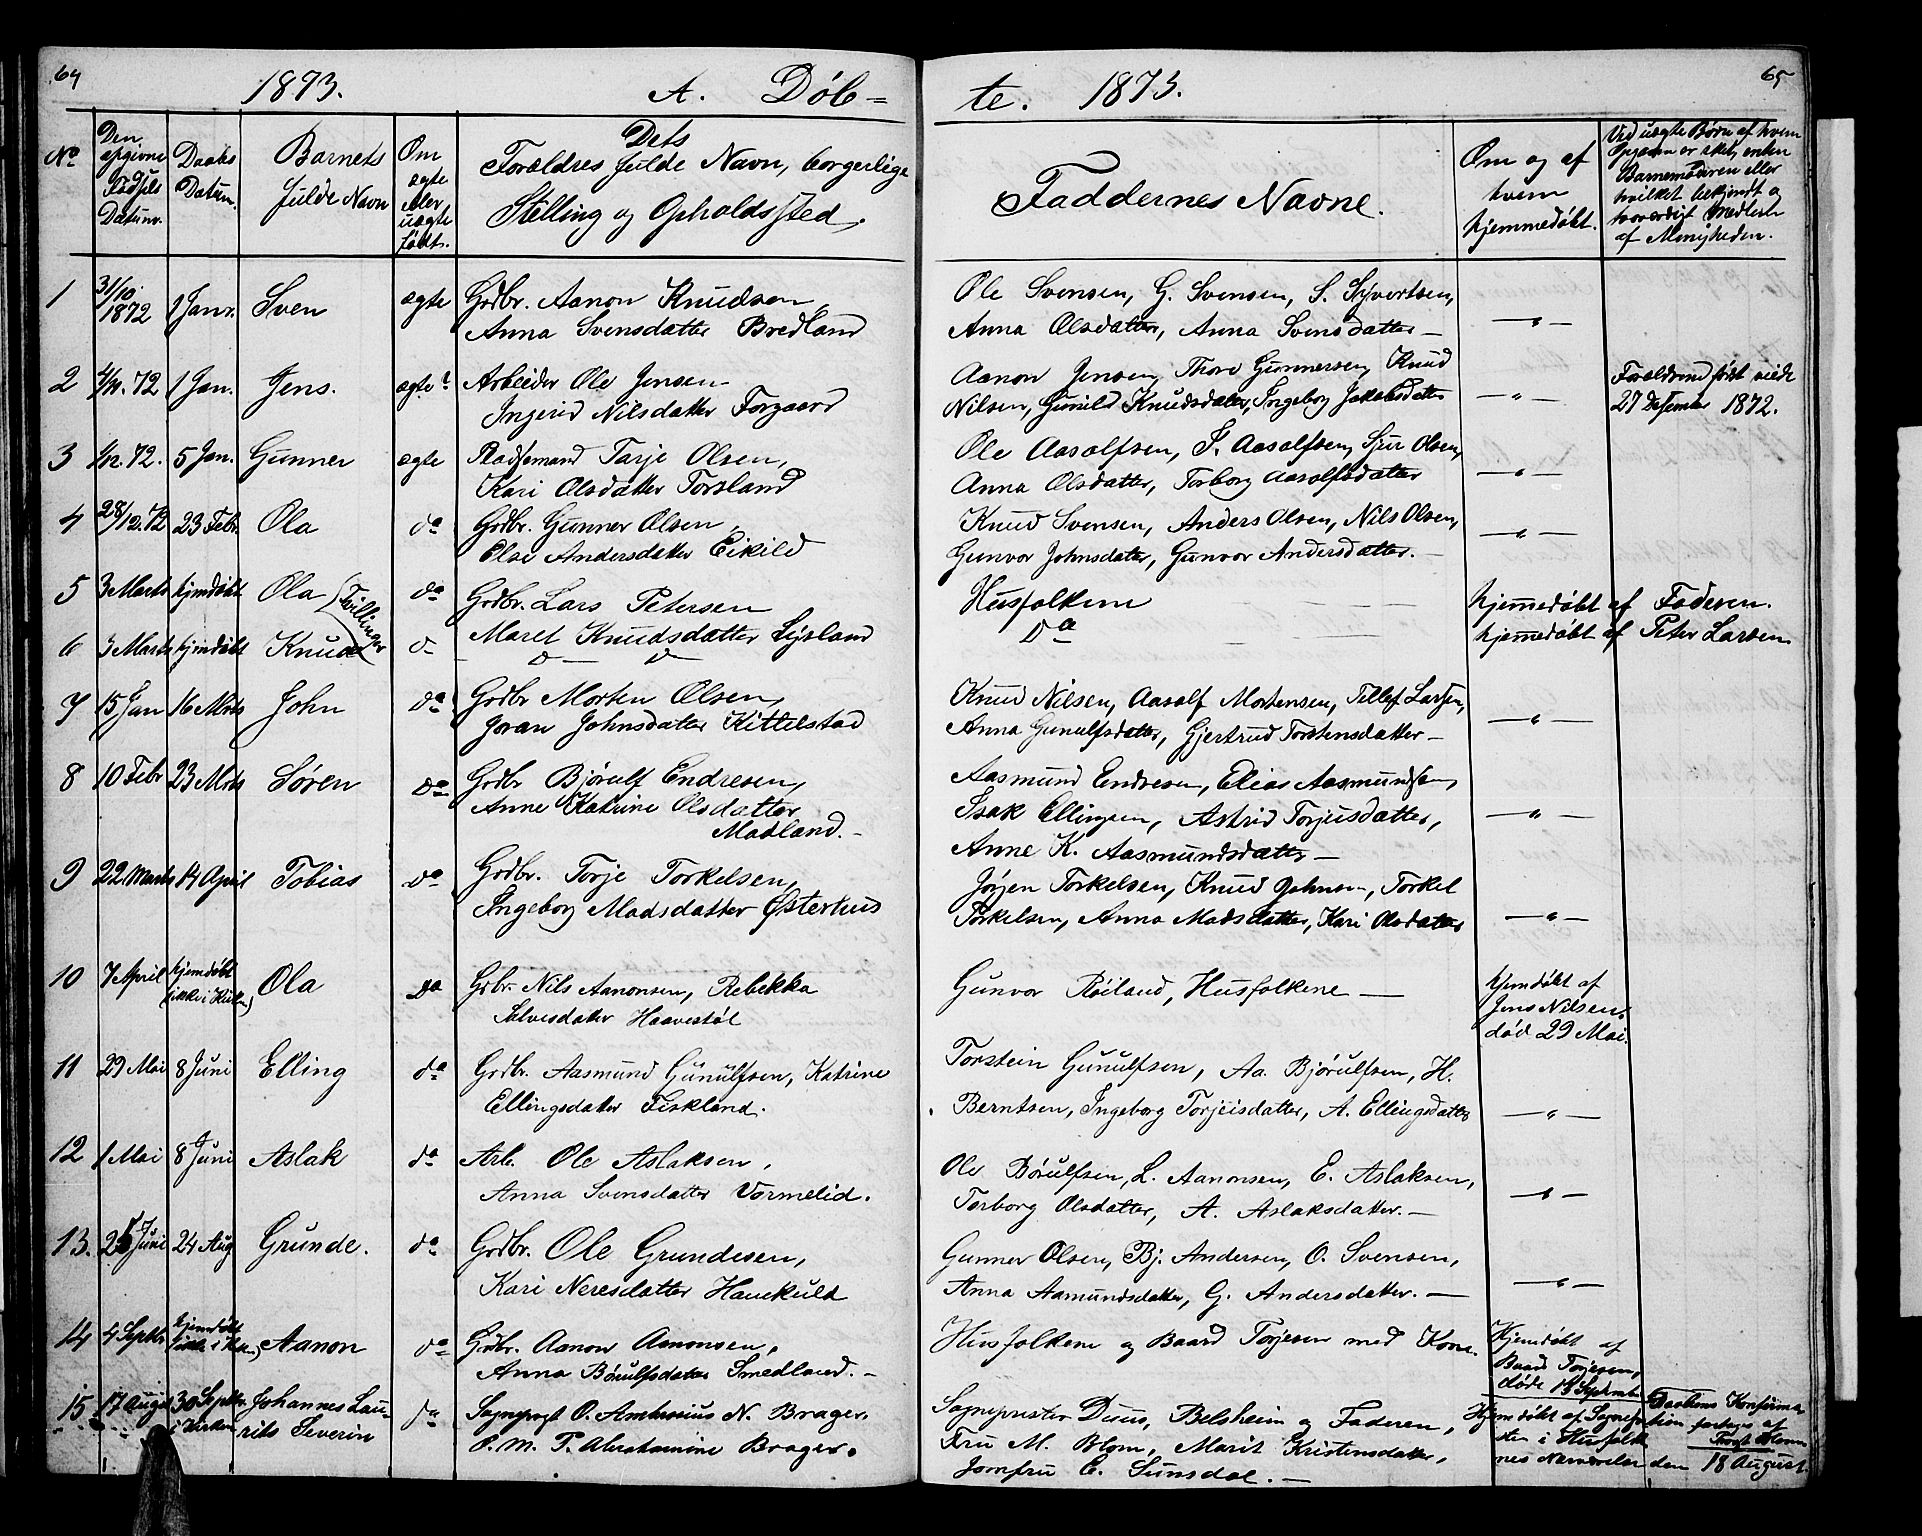 64
1873.
A. Døb=
te. 1873.
65
No
Den
opgivne
Fødsels
Datum.
Daabs
Datum.
Barnets
fulde Navn
Om
ægte
eller
uægte
født.
Dets
Forældres fulde Navn, borgerlige
Stilling og Opholdssted.
Faddernes Navne.
Om og af
hvem
hjemmedøbt.
Ved uægte Børn af hvem
Opgaven er sket, enten
Barnemoderen eller
hvilket bekjendt og
troværdigt Medlem
af Menigheden.
1 31/10 1872 1 Janr. Sven ægte Grdbr. Aanon Knudsen,
Anna Svensdatter Bredland
Ole Svensen, G. Svensen, S. Syvertsen,
Anna Olsdatter, Anna Svensdatter —
2 72 1 Jan. Jens. ægte Arbeider Ole Jensen
Ingerid Nilsdatter Forgaard
Aanon Jensen, Thore Gunnersen, Knud
Nilsen, Gunild Knudsdatter, Ingeborg Jakobsdatter
Forældrene først viede
27 Desember 1872.
3 1/12. 72. 5 Jan. Gunner ægte Pladsemand Tarje Olsen,
Kari Olsdatter Torsland
Ole Aasolfsen, S. Aasolfsen, Sjur Olsen,
Anna Olsdatter, Torborg Aasolfsdatter
4 28/12. 72 23 Febr. Ola do Grdbr. Gunner Olsen,
Else Andersdatter Eikild
Knud Svensen, Anders Olsen, Nils Olsen,
Gunvor Johnsdatter, Gunvor Andersdatter. —
5 3 Marts hjemdøbt Ola (Tvillinger do Grdbr. Lars Petersen
Husfolkene hjemmedøbt af Faderen.
6 3 Marts hjemdøbt Knud Maret Knudsdatter Lysland
Do hjemmedøbt af Peter Larsen
7 15 Jan 16 Mrts John do Grdbr Morten Olsen,
Joran Johnsdatter Kittelstad
Knud Nilsen, Aasolf Mortensen, Tellef Larsen,
Anna Gunulfsdatter, Gjertrud Torstensdatter —
8 10 Febr 23 Mrts Søren do Grdbr Bjørulf Endresen,
Anne Katrine Olsdatter
Madland. —
Aasmund Endresen, Elias Aasmundsen,
Isak Ellingsen, Astrid Torjusdatter,
Anne K. Aasmundsdatter —
9 22 Marts 14 April Tobias do Grdbr. Torje Torkelsen,
Ingeborg Madsdatter Østerhus
Jørgen Torkelsen, Knud Johnsen, Torkel
Torkelsen, Anna Madsdatter, Kari Olsdatter
10 7 April hjemdøbt
(ikke i Kirken) Ola Do Grbr. Nils Aanonsen, Rebekka
Salvesdatter Haavestøl
Gunvor Røiland, Husfolkene —
hjemdøbt af
Jens Nilsen.
død 29 Mai.
11 29 Mai 8 Juni Elling do Grdbr. Aasmund Gunulfsen, Katrine
Ellingsdatter Fiskland.
Torstein Gunulfsen, Aa. Bjørulfsen, H.
Berntsen, Ingeborg Torjeisdatter, A. Ellingsdatter
12 1 Mai 8 Juni Aslak do Arb. Ole Aslaksen,
Anna Svensdatter Vormelid.
Ole Børulfsen, L. Aanonsen, E. Aslaksen,
Torborg Olsdatter, A. Aslaksdatter. —
13. Juni 24 Aug Grunde. do Grdbr. Ole Grundesen,
Kari Neresdatter Haukuld
Gunner Olsen, Bj. Andersen, O. Svensen,
Anna Aamundsdatter, G. Andersdatter. —
14 4 Septbr. hjemdøbt
(ikke i Kirken) Aanon do Grdbr. Aanon Aanonsen,
Anna Børulfsdatter Smedland. —
Husfolkene og Baard Torjesen med Kone.
Hjemdøbt af
Baard Torjesen,
døde 13 September
15 17 August 30 Septbr.
i Kirken Johannes Lau-
rits Severin do Sognepræst O. Ambrosius N. Brager.
O. M. P. Abrahamine Brager.
Sogneprester Duus, Belsheim og Faderen,
Fru M. Blom, Marit Kristensdatter,
Jomfru C. Sunsdal. —
Hjemdøbt af Sognepre-
sten i Husfolke
nes Nærværelse den 18 August.
Daabens Konfirma-
tion foretages af
Provst Blom